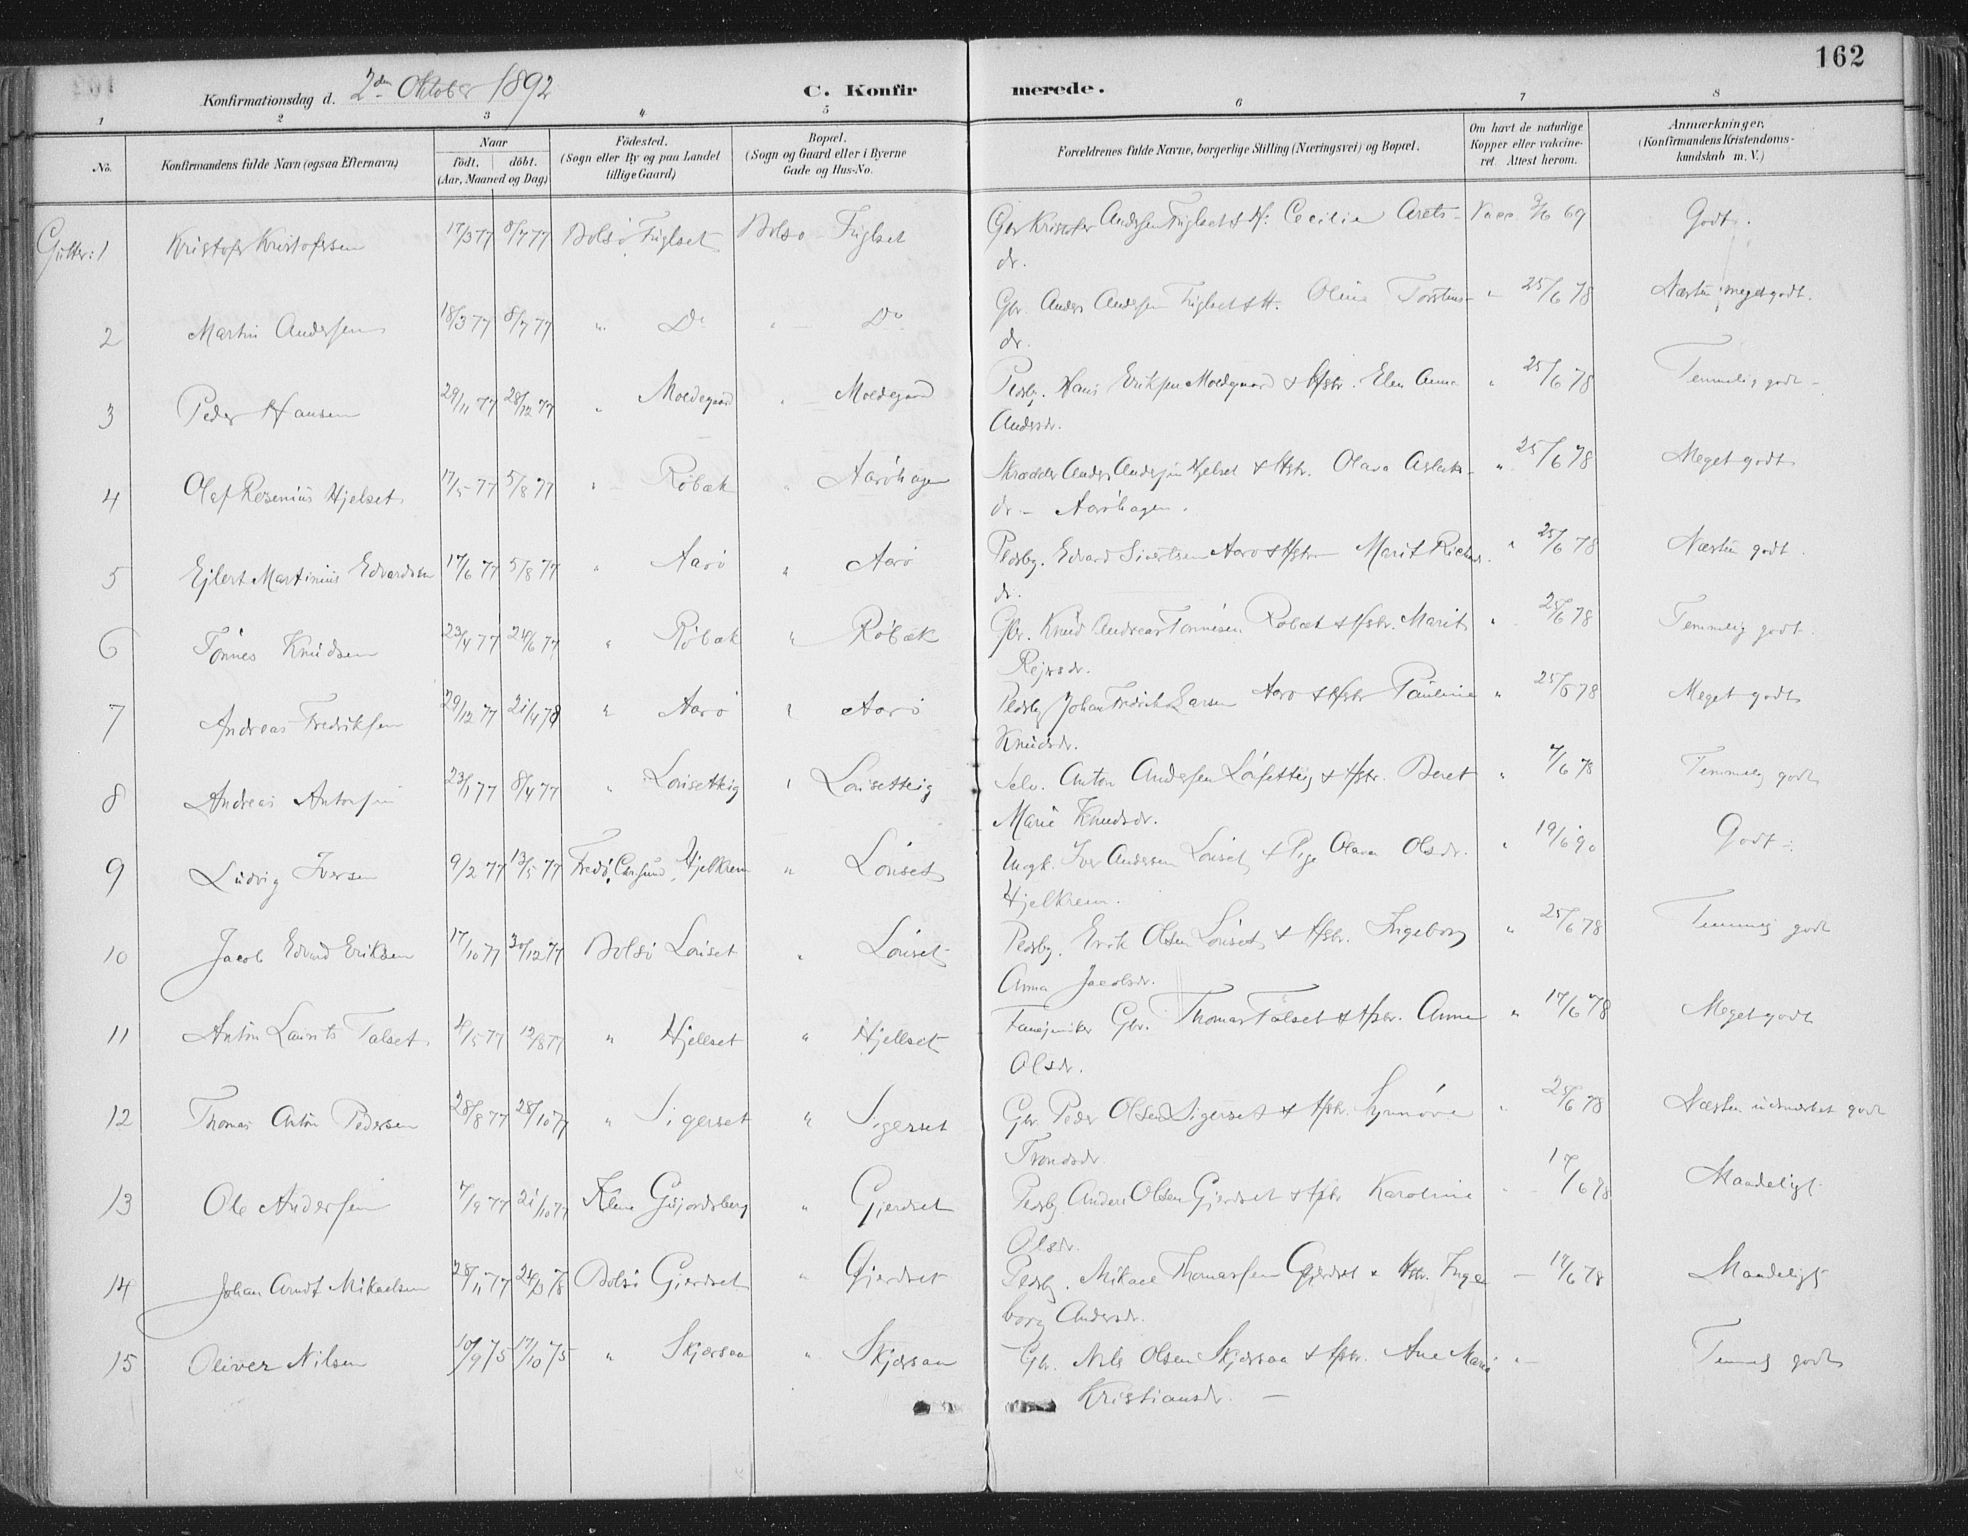 162
Konfirmationsdag d. 2den Oktober 1892 C. Konfirmerede.
1 2 3 4 5 6 7 8
No. Konfirmandens fulde Navn (ogsaa Efternavn) Naar födt. döbt. (Aar, Maaned og Dag) Födested. (Sogn eller By og paa Landet tillige Gaard) Bopæl. (Sogn og Gaard eller i Byerne Gade og Hus-No. Forældrenes fulde Navne, borgerlige Stilling (Næringsvei) og Bopæl. Om havt de naturlige Kopper eller vakcineret. Attest herom. Anmærkninger, (Konfirmandens Kristendomskundskab m. V.)
Gutter: 1 Kristofer Kristofersen 17/3 77 8/7 77 Bolsö Fuglset Bolsö Fuglset Gbr Kristofer Andersen Fuglset & H: Cecilia Arets- Vacc 69 Godt.
dr.
2 Martin Andersen 18/3 77 8/7 77 " Do " Do Gbr. Anders Andersen Fuglset & H. Oline Torstens- " 25/6 78 Næsten meget godt.
dr.
3 Peder Hansen 29/11 77 28/12 77 " Moldegaard Moldegaard Pldsbg. Hans Eriksen Moldegaard & Hstr. Elen Anna " 25/6 78 Temmelig godt
Andersdr.
4 Olaf Rosenius Hjelset 17/5 77 5/8 77 " Röbæk " Aaröhagen Skrædder Anders Andersen Hjelset & Hstr. Olava Aslaks- " 25/6 78 Meget godt
dr. - Aaröhagen.
5 Ejlert Martinius Edvardsen 17/6 77 5/8 77 " Aarö " Aarö Pldsbg. Edvard Sivertsen Aarö & Hstr Marit Richards- " 25/6 78 Næsten godt.
dr.
6 Tönnes Knudsen 23/4 77 24/6 77 " Röbæk " Röbæk Gbr. Knud Andreas Tönnesen Röbæk & Hstr. Marit " 25/6 78 Temmelig godt.
Rejersdr.
7 Andreas Fredriksen 29/12 77 21/4 78 " Aarö " Aarö Pldsbg Johan Fredrik Larsen Aarö & Hstr Pauline " 25/6 78 Meget godt
Knudsdr.
8 Andreas Antonsen 23/1 77 8/4 77 " Lönsetteig " Lönsetteig Selv. Anton Andersen Lönsetteig & Hstr. Beret " 4/6 78 Temmelig godt
Marie Knudsdr.
9 Ludvig Iversen 9/2 77 13/5 77 Fredö, Hjelkrem " Lönset Ungk. Iver Andersen Lönset & Pige Olava Olsdr. " 19/6 90 Godt
Hjelkrem.
10 Jacob Edvard Eriksen 17/10 77 30/12 77 Bolsö Lönset " Lönset Pldsbg. Erik Olsen Lönset & Hstr. Ingeborg " 25/6 78 Temmelig godt
Anna Jacobsdr.
11 Anton Laurits Talset 4/5 77 12/8 77 " Hjellset " Hjellset Gbr. Thomas Talset & Hstr. Anne " 17/6 78 Meget godt
Olsdr.
12 Thomas Anton Pedersen 28/8 77 28/10 77 " Sigerset " Sigerset Gbr. Peder Olsen Sigerset & Hstr. Synnöve " 25/6 78 Næsten udmærket godt
Trondsdr.
13 Ole Andersen 7/9 77 21/10 77 Kleve " Gjerdset Pldsbg Anders Olsen Gjerdset & Hstr Karoline " 17/6 78 Maadeligt
Olsdr.
14 Johan Arndt Mikaelsen 28/11 77 78 Bolsö Gjerdset " Gjerdset Pldsbg. Mikael Thomassen Gjerdset & Hstr. Inge- - 17/6 78 Maadeligt
borg Andersdr.
15 Oliver Nilsen 10/9 75 17/10 75 " Skjærsaa " Skjærsaa Gbr. Nils Olsen Skjærsaa & Hstr. Ane Marie " - Temmelig godt
Kristiansdr. -